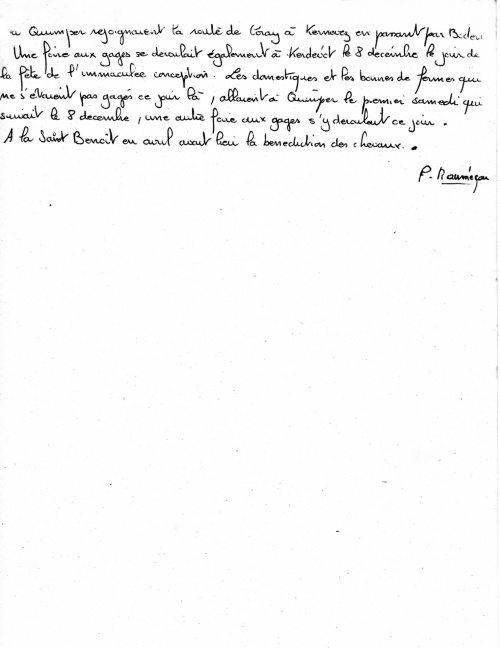 a Quimper rejoignaient la route de Coray à Kernevez en passant par
Une foire aux gages se deroulait également à Kerdévot le 8 décembre le jour de
la fête de l'immaculée conception. Les domestiques et les bonnes de fermes qui
ne s'étaient pas gagés ce jour là, allaient à Quimper le premier samedi qui
suivait le 8 decembre, une autre foire aux gages s'y deroulant ce jour.
A la Saint Benoît en avril avait lieu la benediction des chevaux.